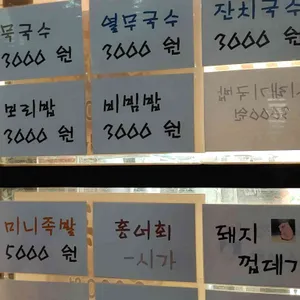 묵국수 열무국수 잔치국수
3000 원 3000 원 3000 원
보리밥 비빔밥
3000 원 3000 원 3000원
미니족발 홍어회 돼지
5000 원 -시가 껍데기